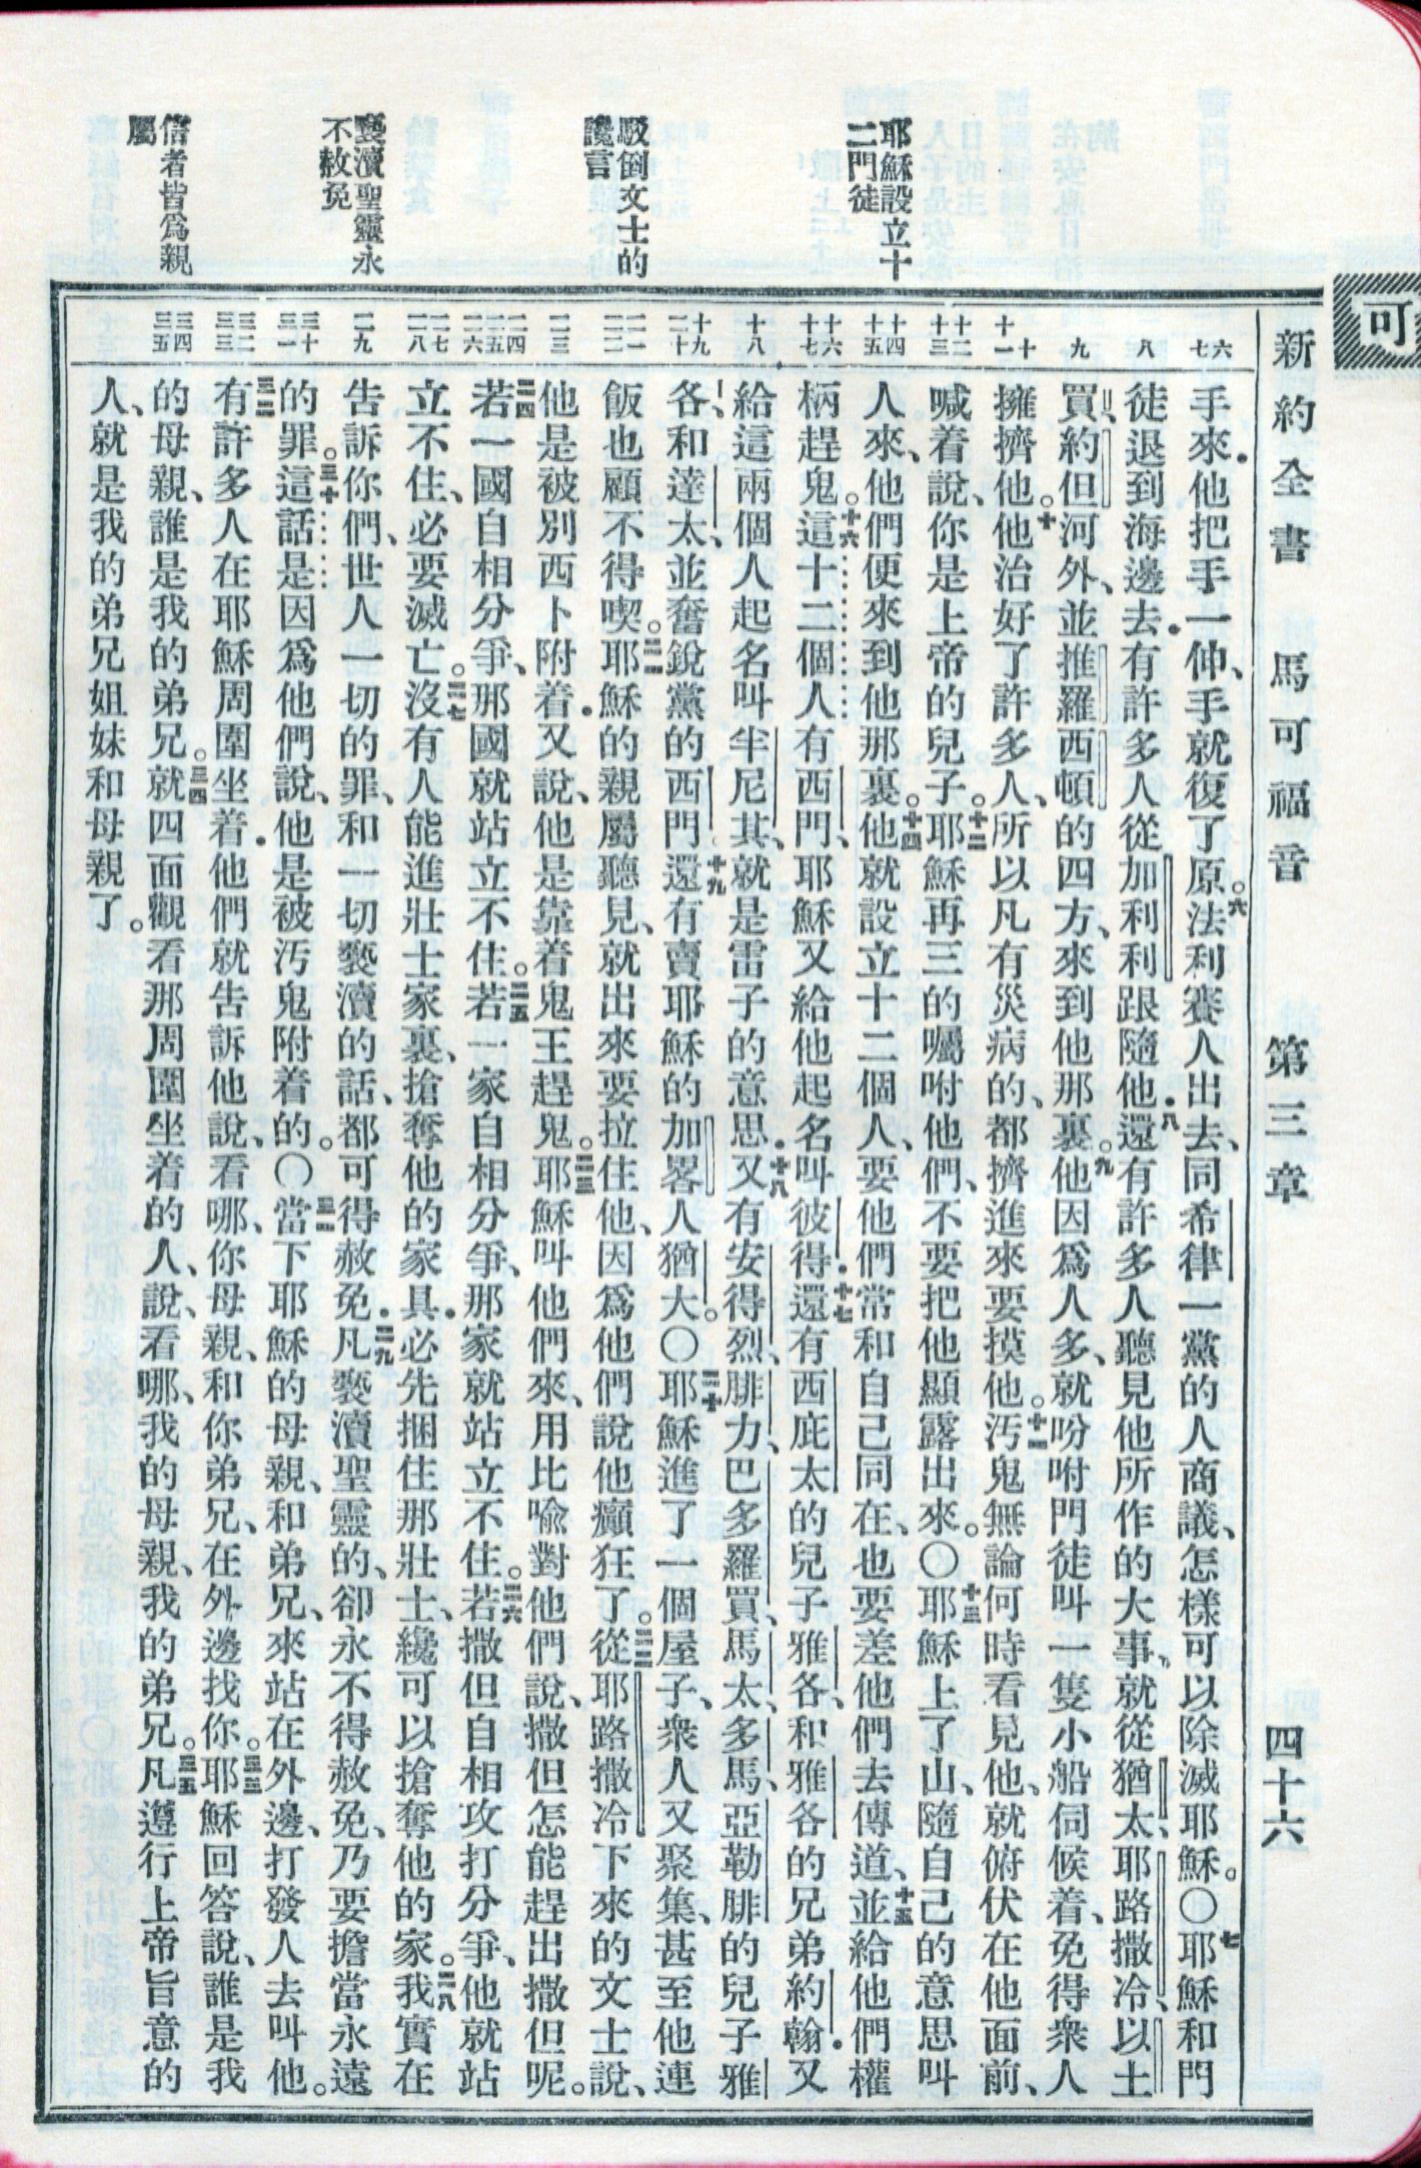 可
新約全書 馬可福音 第三章 四十六
耶穌設立十
二門徒
駁倒文士的
讒言
褻瀆聖靈永
不赦免
信者皆爲親
屬
六 七 八 九 十 十一 十二 十三 十四 十五 十六 十七 十八 十九 二十 二一 二二 二三 二四 二五 二六 二七 二八 二九 三十 三一 三二 三三 三四 三五
手來．他把手一伸、手就復了原。六法利賽人出去、同希律一黨的人商議、怎樣可以除滅耶穌。〇七耶穌和門
徒退到海邊去．有許多人從加利利跟隨他．八還有許多人聽見他所作的大事、就從猶太、耶路撒冷、以土
買、約但河外、並推羅西頓的四方、來到他那裏。九他因爲人多、就吩咐門徒叫一隻小船伺候着、免得衆人
擁擠他。十他治好了許多人、所以凡有災病的、都擠進來要摸他。十一污鬼無論何時看見他、就俯伏在他面前、
喊着說、你是上帝的兒子。十二耶穌再三的囑咐他們、不要把他顯露出來。〇十三耶穌上了山、隨自己的意思叫
人來、他們便來到他那裏。十四他就設立十二個人、要他們常和自己同在、也要差他們去傳道、十五並給他們權
柄趕鬼。十六這十二個人有西門、耶穌又給他起名叫彼得．十七還有西庇太的兒子雅各、和雅各的兄弟約翰．又
給這兩個人起名叫半尼其、就是雷子的意思．十八又有安得烈、腓力、巴多羅買、馬太、多馬、亞勒腓的兒子雅
各、和達太、並奮銳黨的西門、十九還有賣耶穌的加畧人猶大。〇二十耶穌進了一個屋子、衆人又聚集、甚至他連
飯也顧不得喫。二一耶穌的親屬聽見、就出來要拉住他、因爲他們說他癲狂了。二二從耶路撒冷下來的文士說、
他是被別西卜附着．又說、他是靠着鬼王趕鬼。二三耶穌叫他們來、用比喩對他們說、撒但怎能趕出撒但呢。
二四若一國自相分爭、那國就站立不住。二五若一家自相分爭、那家就站立不住。二六若撒但自相攻打分爭、他就站
立不住、必要滅亡。二七沒有人能進壯士家裏、搶奪他的家具．必先捆住那壯士、纔可以搶奪他的家。二八我實在
告訴你們、世人一切的罪、和一切褻瀆的話、都可得赦免．二九凡褻瀆聖靈的、卻永不得赦免、乃要擔當永遠
的罪。三十這話是因爲他們說、他是被污鬼附着的。〇三一當下耶穌的母親、和弟兄、來站在外邊、打發人去叫他。
三二有許多人在耶穌周圍坐着．他們就告訴他說、看哪、你母親、和你弟兄、在外邊找你。三三耶穌回答說、誰是我
的母親、誰是我的弟兄。三四就四面觀看那周圍坐着的人、說、看哪、我的母親、我的弟兄。三五凡遵行上帝旨意的
人、就是我的弟兄姐妹和母親了。